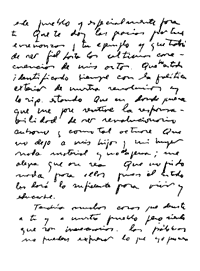 este pueblo y especialmente para
ti. Que te doy las gracias por tus
enseñanzas y tu ejemplo y que trataré
de ser fiel hasta las últimas conse-
cuencias de mis actos. Que he estado
identificado siempre con la política
exterior de nuestra revolución y
lo sigo estando. Que en donde quiera
que me pare sentiré la responsa-
bilidad de ser revolucionario
cubano y como tal actuaré. Que
no dejo a mis hijos y mi mujer
nada material y no me apena; me
alegra que así sea. Que no pido
nada para ellos pues el Estado
les dará lo suficiente para vivir y
educarse.
Tendría muchas cosas que decirte
a ti y a nuestro pueblo pero siento
que son innecesarias. Las palabras
no pueden expresar lo que yo